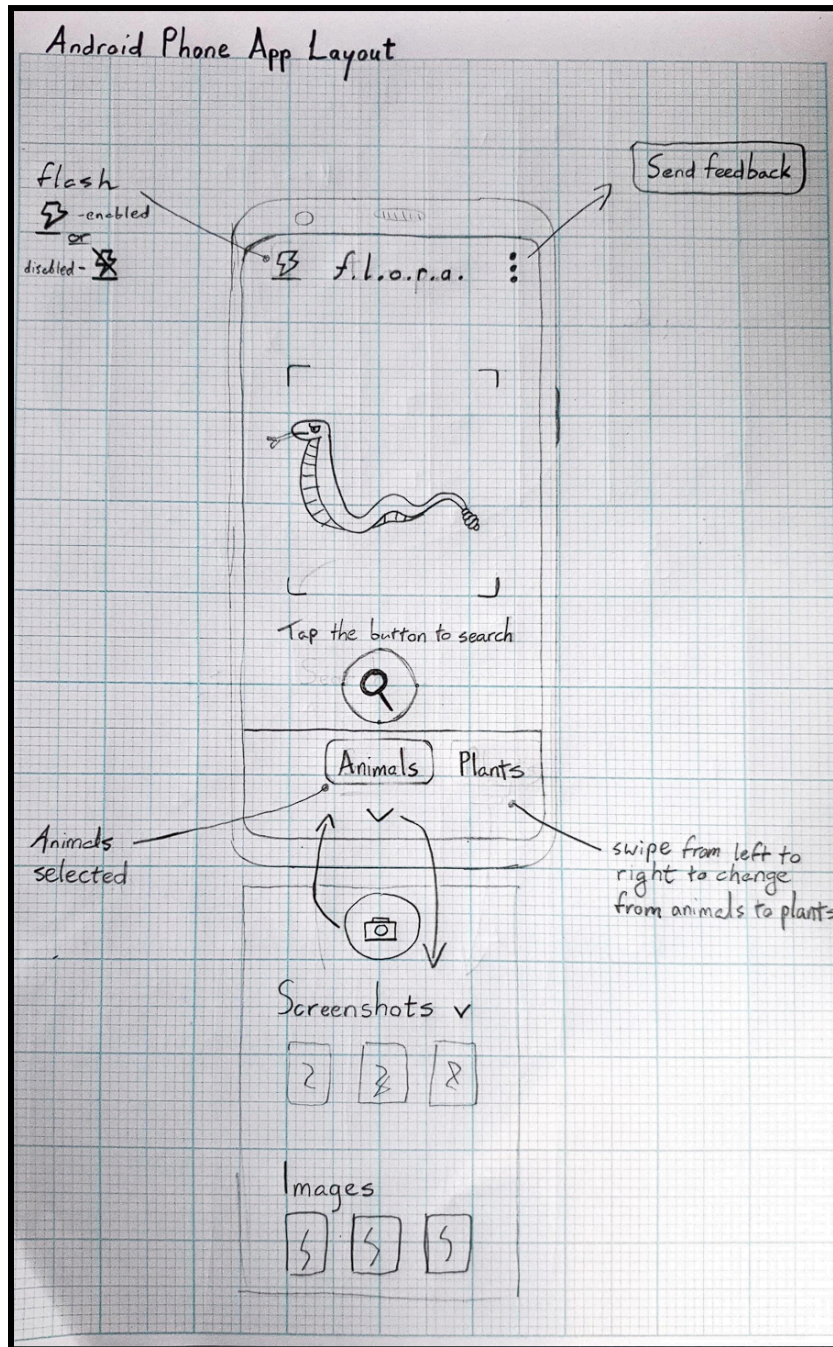 Android Phone App Layout
Send feedback
flash
-enabled
or
disabled-
f.l.o.r.a.
Tap the button to search
Animals
Plants
Animals
selected
swipe from left to
right to change
from animals to plants
Screenshots
Images